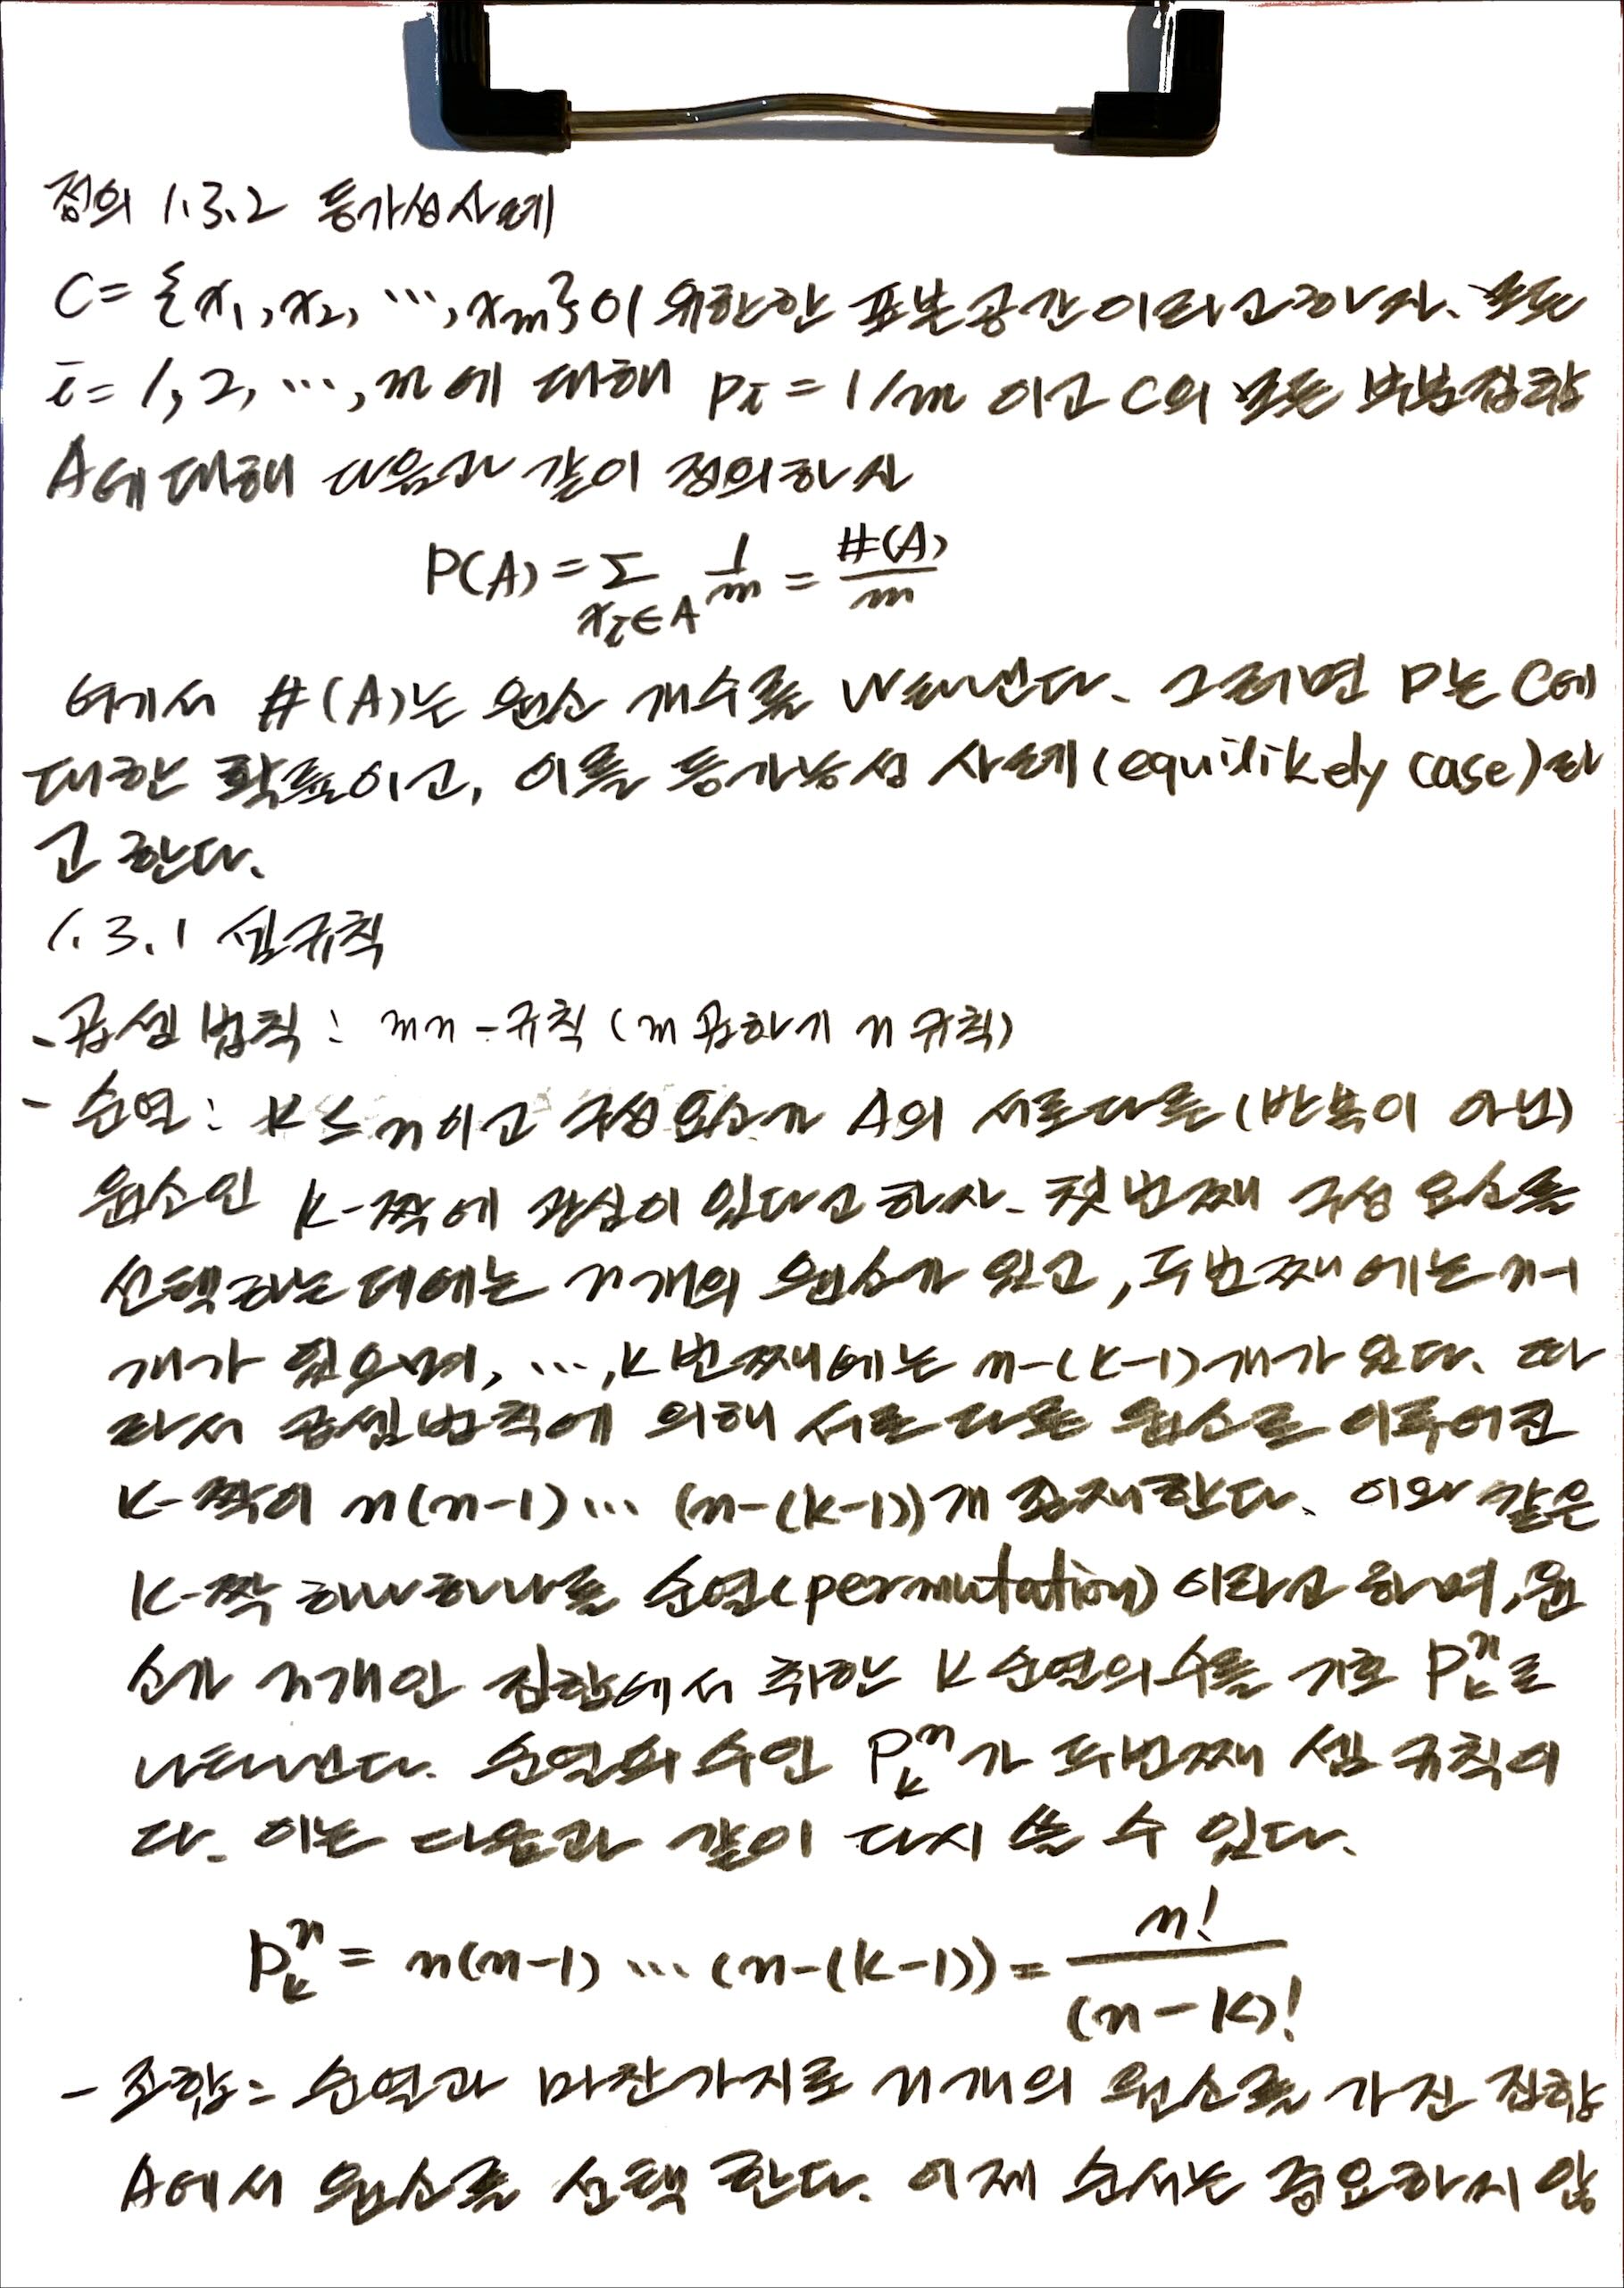 정의 1.3.2 등가성사례
C = {x₁, x₂, ⋯, xₘ}이 유한한 표본공간이라고 하자. 모든
i = 1, 2, ⋯, m에 대해 pᵢ = 1/m 이고 C의 모든 부분집합
A에 대해 다음과 같이 정의하자
P(A) = Σ_{xᵢ∈A} 1/m = #(A)/m
여기서 #(A)는 원소 개수를 나타낸다. 그러면 P는 C에
대한 확률이고, 이를 등가능성 사례(equilikely case)라
고 한다.
1.3.1 셈규칙
- 곱셈 법칙: mn-규칙 (m 곱하기 n 규칙)
- 순열: k ≤ n이고 구성 요소가 A의 서로다른 (반복이 아닌)
원소인 k-짝에 관심이 있다고 하자. 첫 번째 구성 요소를
선택하는 데에는 n개의 원소가 있고, 두번째에는 n-1
개가 있으며, ⋯, k번째에는 n-(k-1)개가 있다. 따
라서 곱셈법칙에 의해 서로 다른 원소로 이루어진
k-짝이 n(n-1)⋯(n-(k-1))개 존재한다. 이와 같은
k-짝 하나하나를 순열(permutation)이라고 하며, 원
소가 n개인 집합에서 취한 k순열의 수를 기호 Pₖⁿ로
나타낸다. 순열의 수인 Pₖⁿ가 두번째 셈 규칙이
다. 이는 다음과 같이 다시 쓸 수 있다.
Pₖⁿ = n(n-1)⋯(n-(k-1)) = n!/(n-k)!
- 조합: 순열과 마찬가지로 n개의 원소를 가진 집합
A에서 원소를 선택 한다. 이제 순서는 중요하지 않